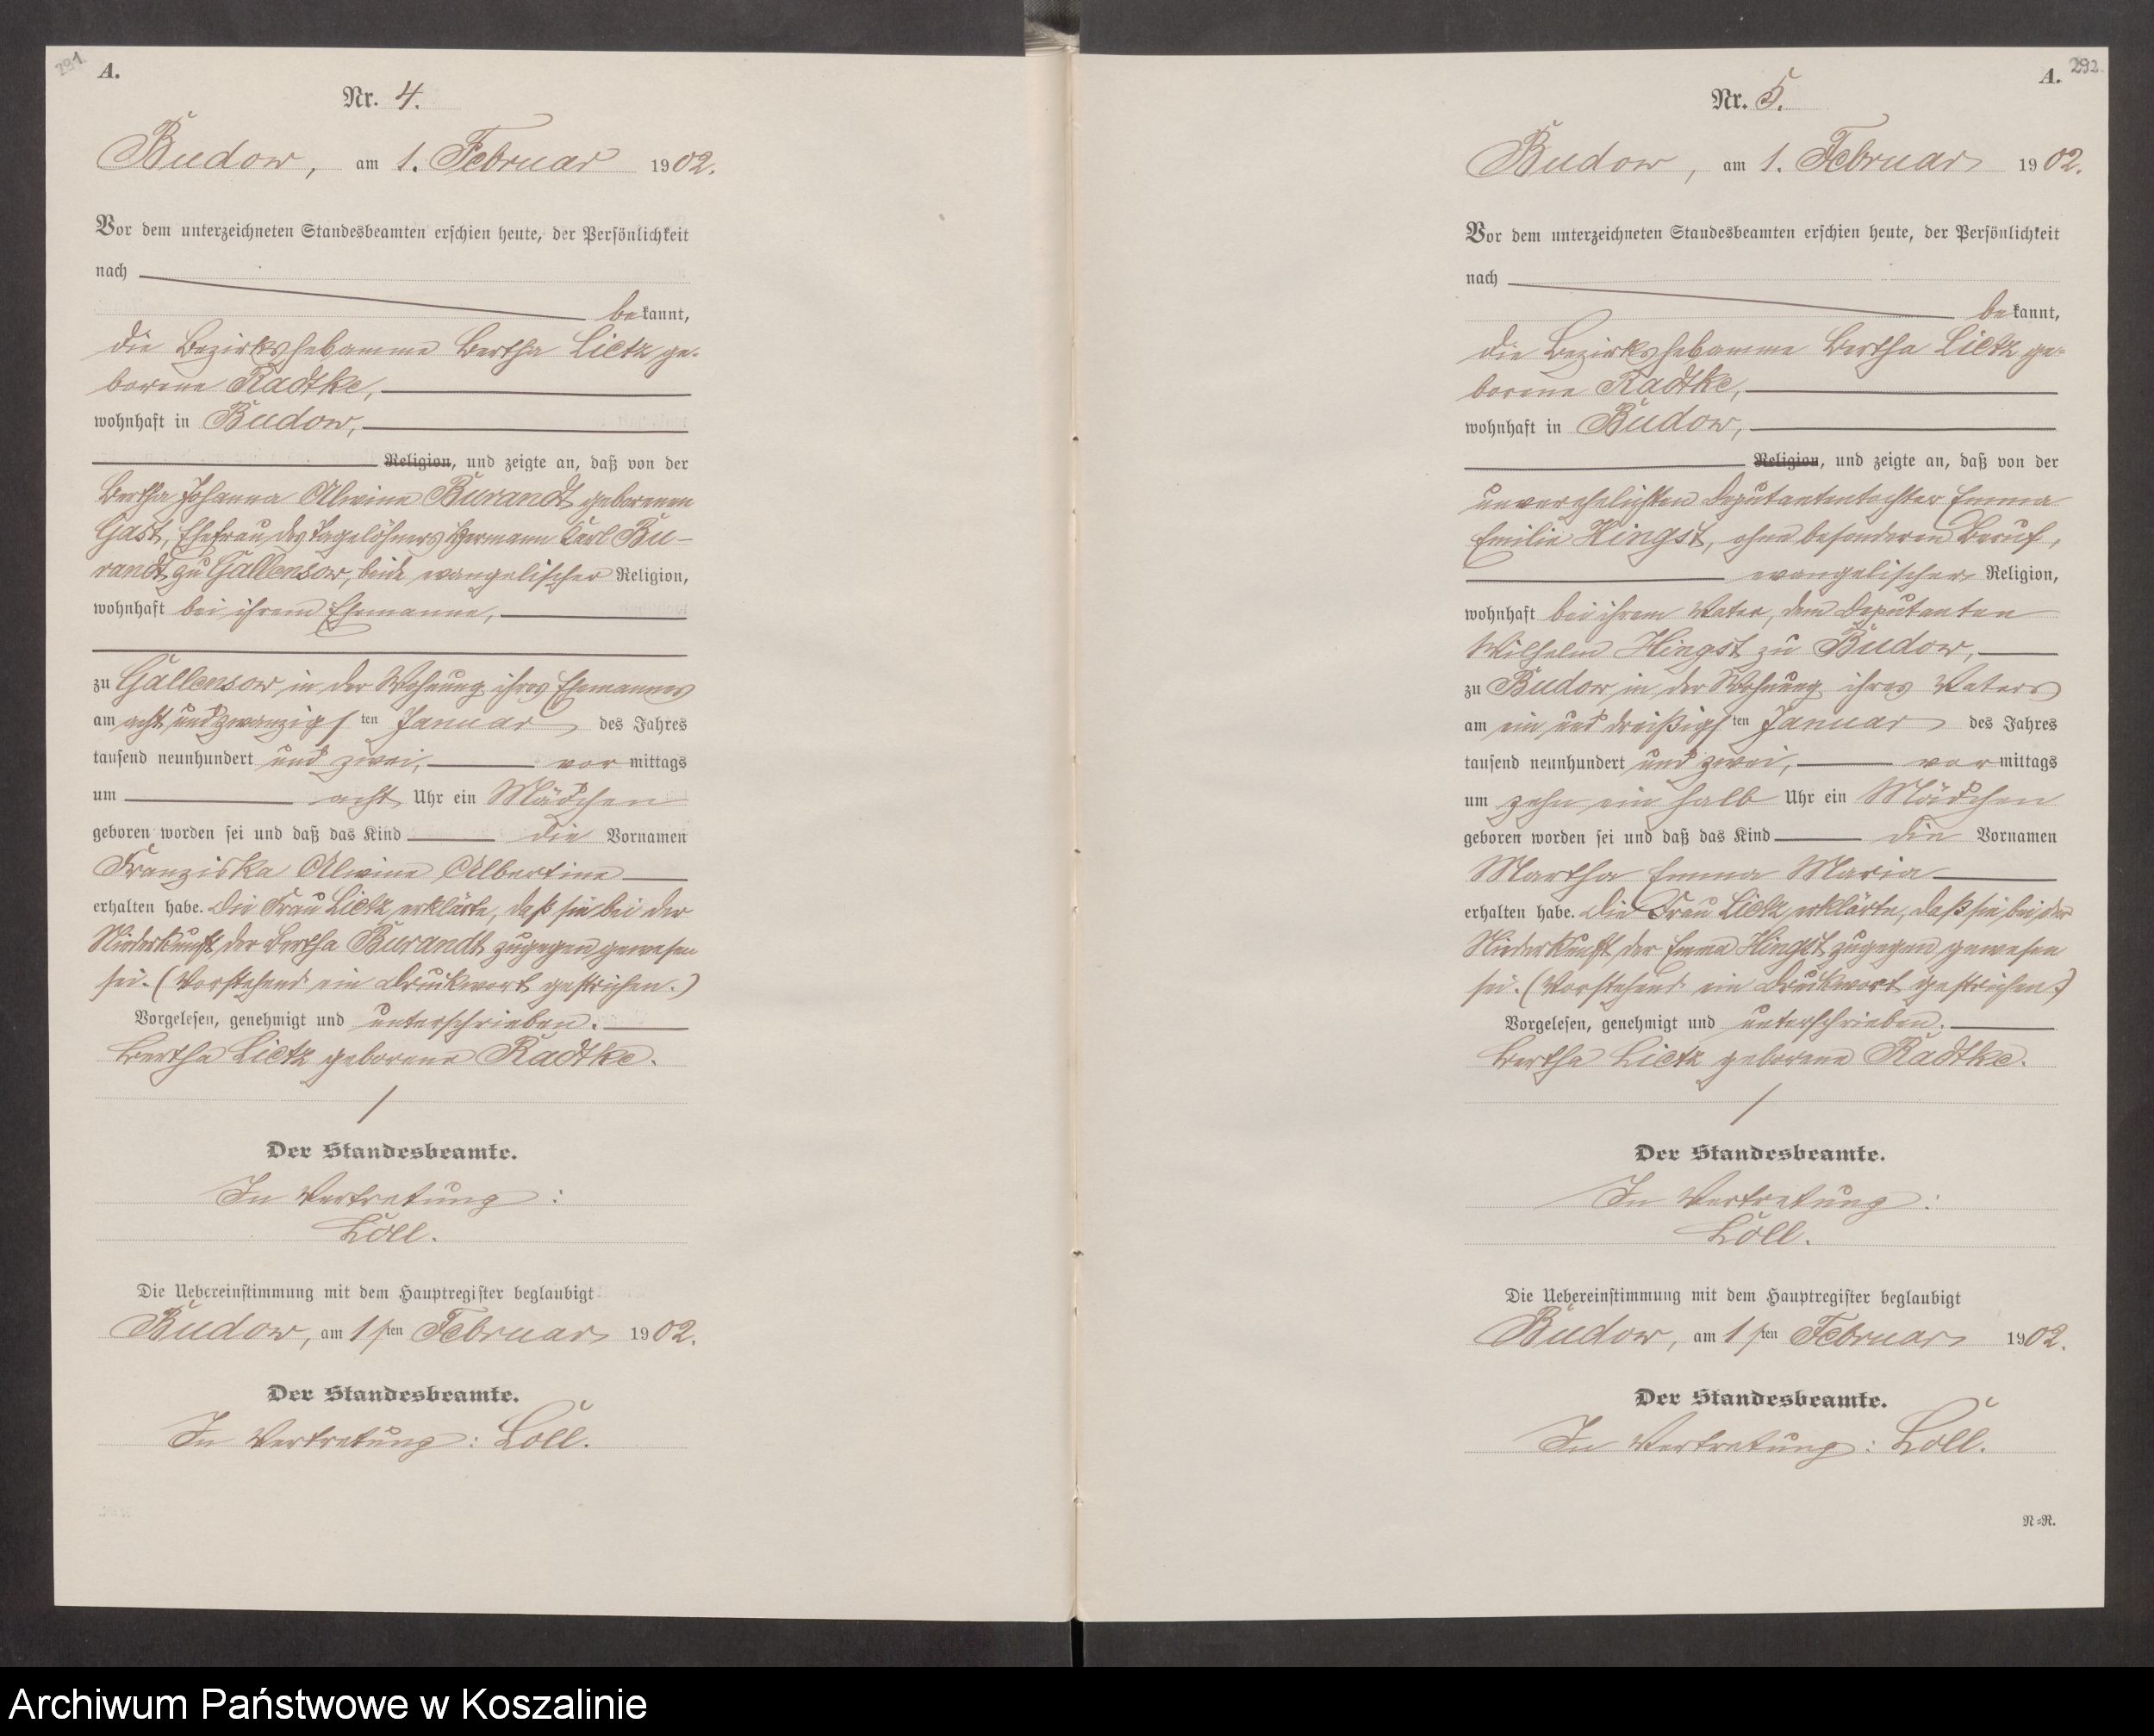 291.
A.
Nr. 4.
Budow, am 1. Februar 1902.
Vor dem unterzeichneten Standesbeamten erschien heute, der Persönlichkeit
nach
bekannt,
die Bezirkshebamme Bertha Lietz ge-
borene Radtke,
wohnhaft in Budow,
Religion, und zeigte an, daß von der
Bertha Johanna Alwine Burandt geborenen
Gast, Ehefrau des Tagelöhners Hermann Carl Bu-
randt zu Gallensow, beide evangelischer Religion,
wohnhaft bei ihrem Ehemanne,
zu Gallensow, in der Wohnung ihres Ehemannes
am acht und zwanzigsten Januar des Jahres
tausend neunhundert und zwei, vormittags
um acht Uhr ein Mädchen
geboren worden sei und daß das Kind die Vornamen
Franziska Alwine Albertine
erhalten habe. Die Frau Lietz erklärte, daß sie bei der
Niederkunft der Bertha Burandt zugegen gewesen
sei. (Vorstehend ein Druckwort gestrichen.)
Vorgelesen, genehmigt und unterschrieben.
Bertha Lietz geborene Radtke.
Der Standesbeamte.
In Vertretung:
Löll.
Die Uebereinstimmung mit dem Hauptregister beglaubigt
Budow, am 1sten Februar 1902.
Der Standesbeamte.
In Vertretung: Löll.
292
A.
Nr. 5.
Budow, am 1. Februar 1902.
Vor dem unterzeichneten Standesbeamten erschien heute, der Persönlichkeit
nach
bekannt,
die Bezirkshebamme Bertha Lietz ge-
borene Radtke,
wohnhaft in Budow,
Religion, und zeigte an, daß von der
unverehelichten Deputantentochter Emma
Emilie Hingst, ohne besonderen Beruf,
evangelischer Religion,
wohnhaft bei ihrem Vater, dem Deputanten
Wilhelm Hingst zu Budow,
zu Budow in der Wohnung ihres Vaters
am ein und dreißigsten Januar des Jahres
tausend neunhundert und zwei, vormittags
um zehn ein halb Uhr ein Mädchen
geboren worden sei und daß das Kind die Vornamen
Martha Emma Maria
erhalten habe. Die Frau Lietz erklärte, daß sie bei der
Niederkunft der Emma Hingst zugegen gewesen
sei. (Vorstehend ein Druckwort gestrichen.)
Vorgelesen, genehmigt und unterschrieben.
Bertha Lietz geborene Radtke.
Der Standesbeamte.
In Vertretung:
Löll.
Die Uebereinstimmung mit dem Hauptregister beglaubigt
Budow, am 1sten Februar 1902.
Der Standesbeamte.
In Vertretung: Löll.
N=R.
Archiwum Państwowe w Koszalinie